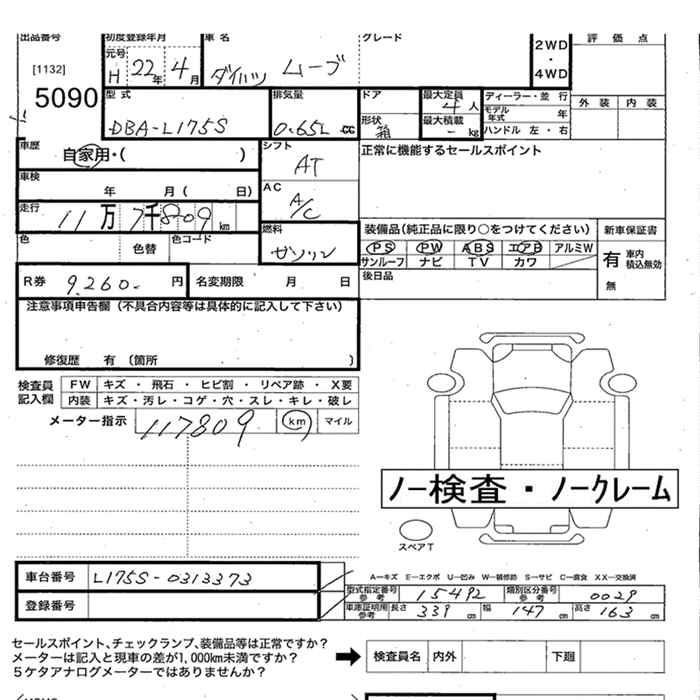 出品番号 初度登録年月 車名 グレード 2WD・4WD 評価点
[1132] 元号 H 22年 4月 ダイハツ ムーブ
5090 型式 排気量 ドア 最大定員 4人 ディーラー・並行 外装 内装
DBA-L175S 0.65L cc 形状 箱 最大積載 - kg モデル年式 年
ハンドル 左・右
車歴 自家用・( ) シフト AT 正常に機能するセールスポイント
車検 年 月( 日) AC A/C
走行 11万7千809km 燃料 ガソリン 装備品(純正品に限り○をつけてください) 新車保証書
色 色替 色コード PS PW ABS エアB アルミW 有 車内積込無効
サンルーフ ナビ TV カワ 無
R券 9,260- 円 名変期限 月 日 後日品
注意事項申告欄(不具合内容等は具体的に記入して下さい)
修復歴 有(箇所 )
検査員記入欄 FW キズ・飛石・ヒビ割・リペア跡・X要
内装 キズ・汚レ・コゲ・穴・スレ・キレ・破レ
メーター指示 117809 km マイル
ノー検査・ノークレーム
スペアT
車台番号 L175S-0313373 A-キズ E-エクボ U-凹み W-補修跡 S-サビ C-腐食 XX-交換済
型式指定番号 参考 15492 類別区分番号 参考 0029
登録番号 車庫証明用 参考 長さ 339cm 幅 147cm 高さ 163cm
セールスポイント、チェックランプ、装備品等は正常ですか?
メーターは記入と現車の差が1,000km未満ですか? ➡ 検査員名 内外 下廻
5ケタアナログメーターではありませんか?